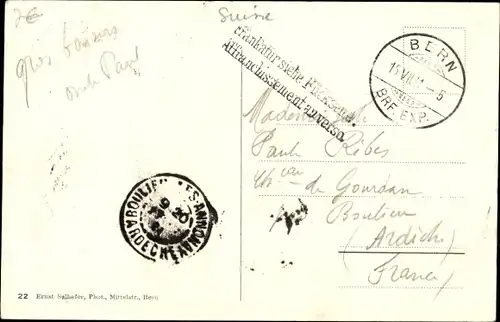 Suisse
gros baisers
oncle Paul
Frankatur siehe Rückseite.
Affranchissement au verso.
BERN
BRF. EXP.
Madame
Paul Ribes
Chau de Gourdan
Boulieu
(Ardèche)
France
BOULIEU-LES-ANNONAY
ARDECHE
22 Ernst Selhofer, Phot., Mittelstr., Bern